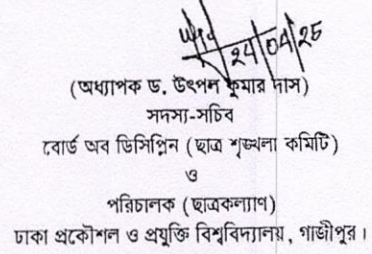 24/04/25
(অধ্যাপক ড. উৎপল কুমার দাস)
সদস্য-সচিব
বোর্ড অব ডিসিপ্লিন (ছাত্র শৃঙ্খলা কমিটি)
ও
পরিচালক (ছাত্রকল্যাণ)
ঢাকা প্রকৌশল ও প্রযুক্তি বিশ্ববিদ্যালয়, গাজীপুর।